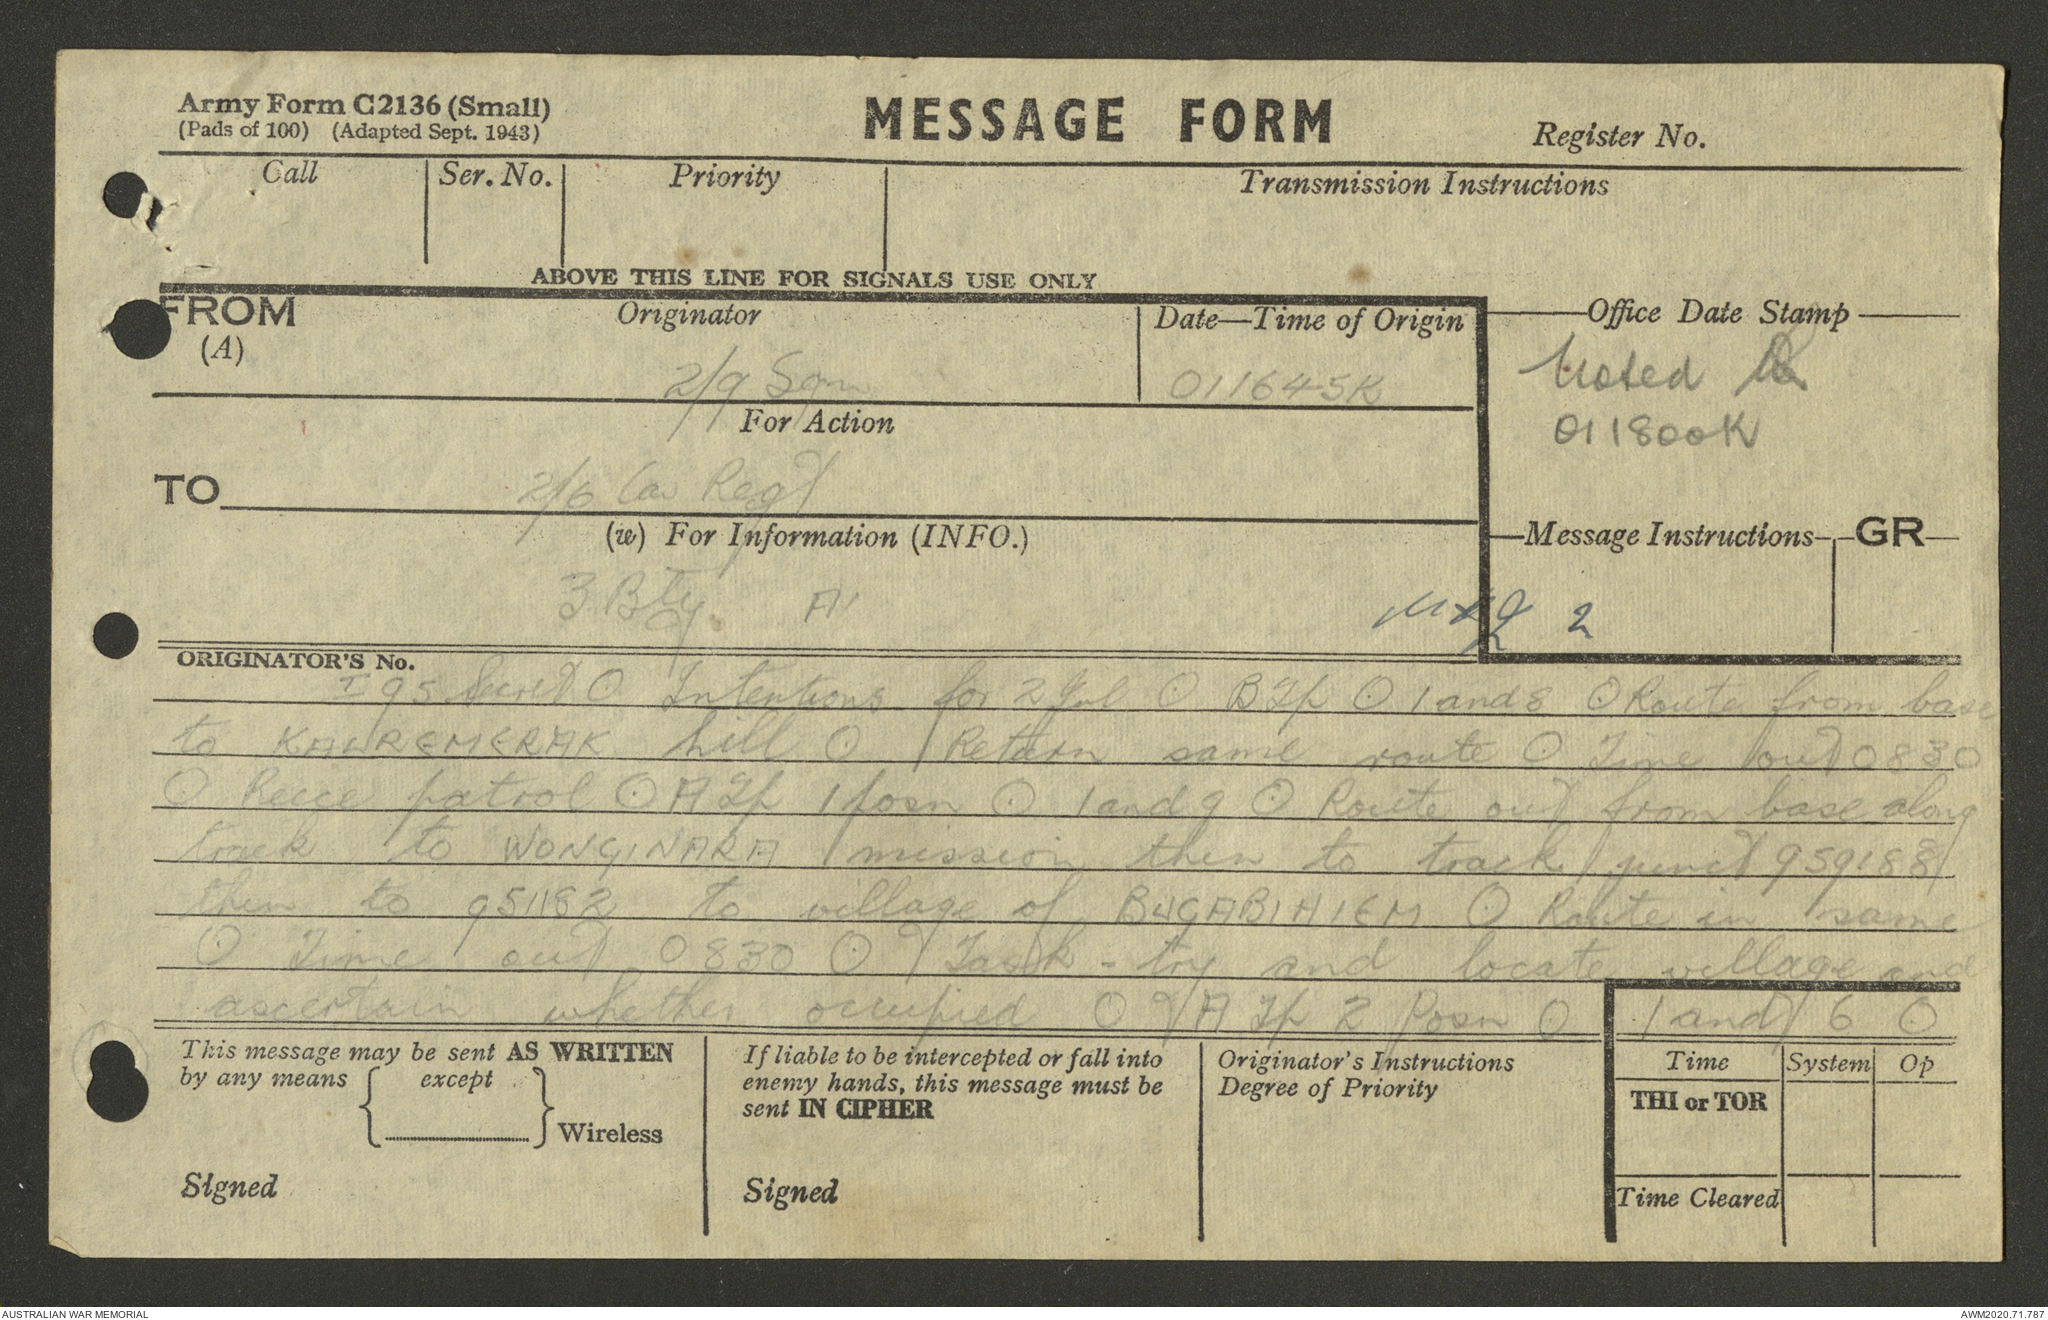 Army Form C2136 (Small)
(Pads of 100) (Adapted Sept. 1943)
MESSAGE FORM
Register No.
Call
Ser. No.
Priority
Transmission Instructions
ABOVE THIS LINE FOR SIGNALS USE ONLY
FROM
(A)
Originator
2/9 Sqn
Date—Time of Origin
011645K
Office Date Stamp
Noted
011800K
For Action
TO
2/6 Cav Regt
(w) For Information (INFO.)
3 Bty
Message Instructions
GR
2
ORIGINATOR'S No.
I 95 Secret ⊙ Intentions for 2 Jul ⊙ B Tp ⊙ 1 and 8 ⊙ Route from base
to KAWREMERAK hill ⊙ Return same route ⊙ Time out 0830
⊙ Recce patrol ⊙ A Tp 1 posn ⊙ 1 and 9 ⊙ Route out from base along
track to WONGINARA mission then to track junct 959188
then to 951182 to village of BUGABIHIEM ⊙ Route in same
⊙ Time out 0830 ⊙ Task - try and locate village and
ascertain whether occupied ⊙ A Tp 2 Posn ⊙ 1 and 6 ⊙
This message may be sent AS WRITTEN
by any means
except
Wireless
Signed
If liable to be intercepted or fall into
enemy hands, this message must be
sent IN CIPHER
Signed
Originator's Instructions
Degree of Priority
Time
System
Op
THI or TOR
Time Cleared
AUSTRALIAN WAR MEMORIAL
AWM2020.71.787